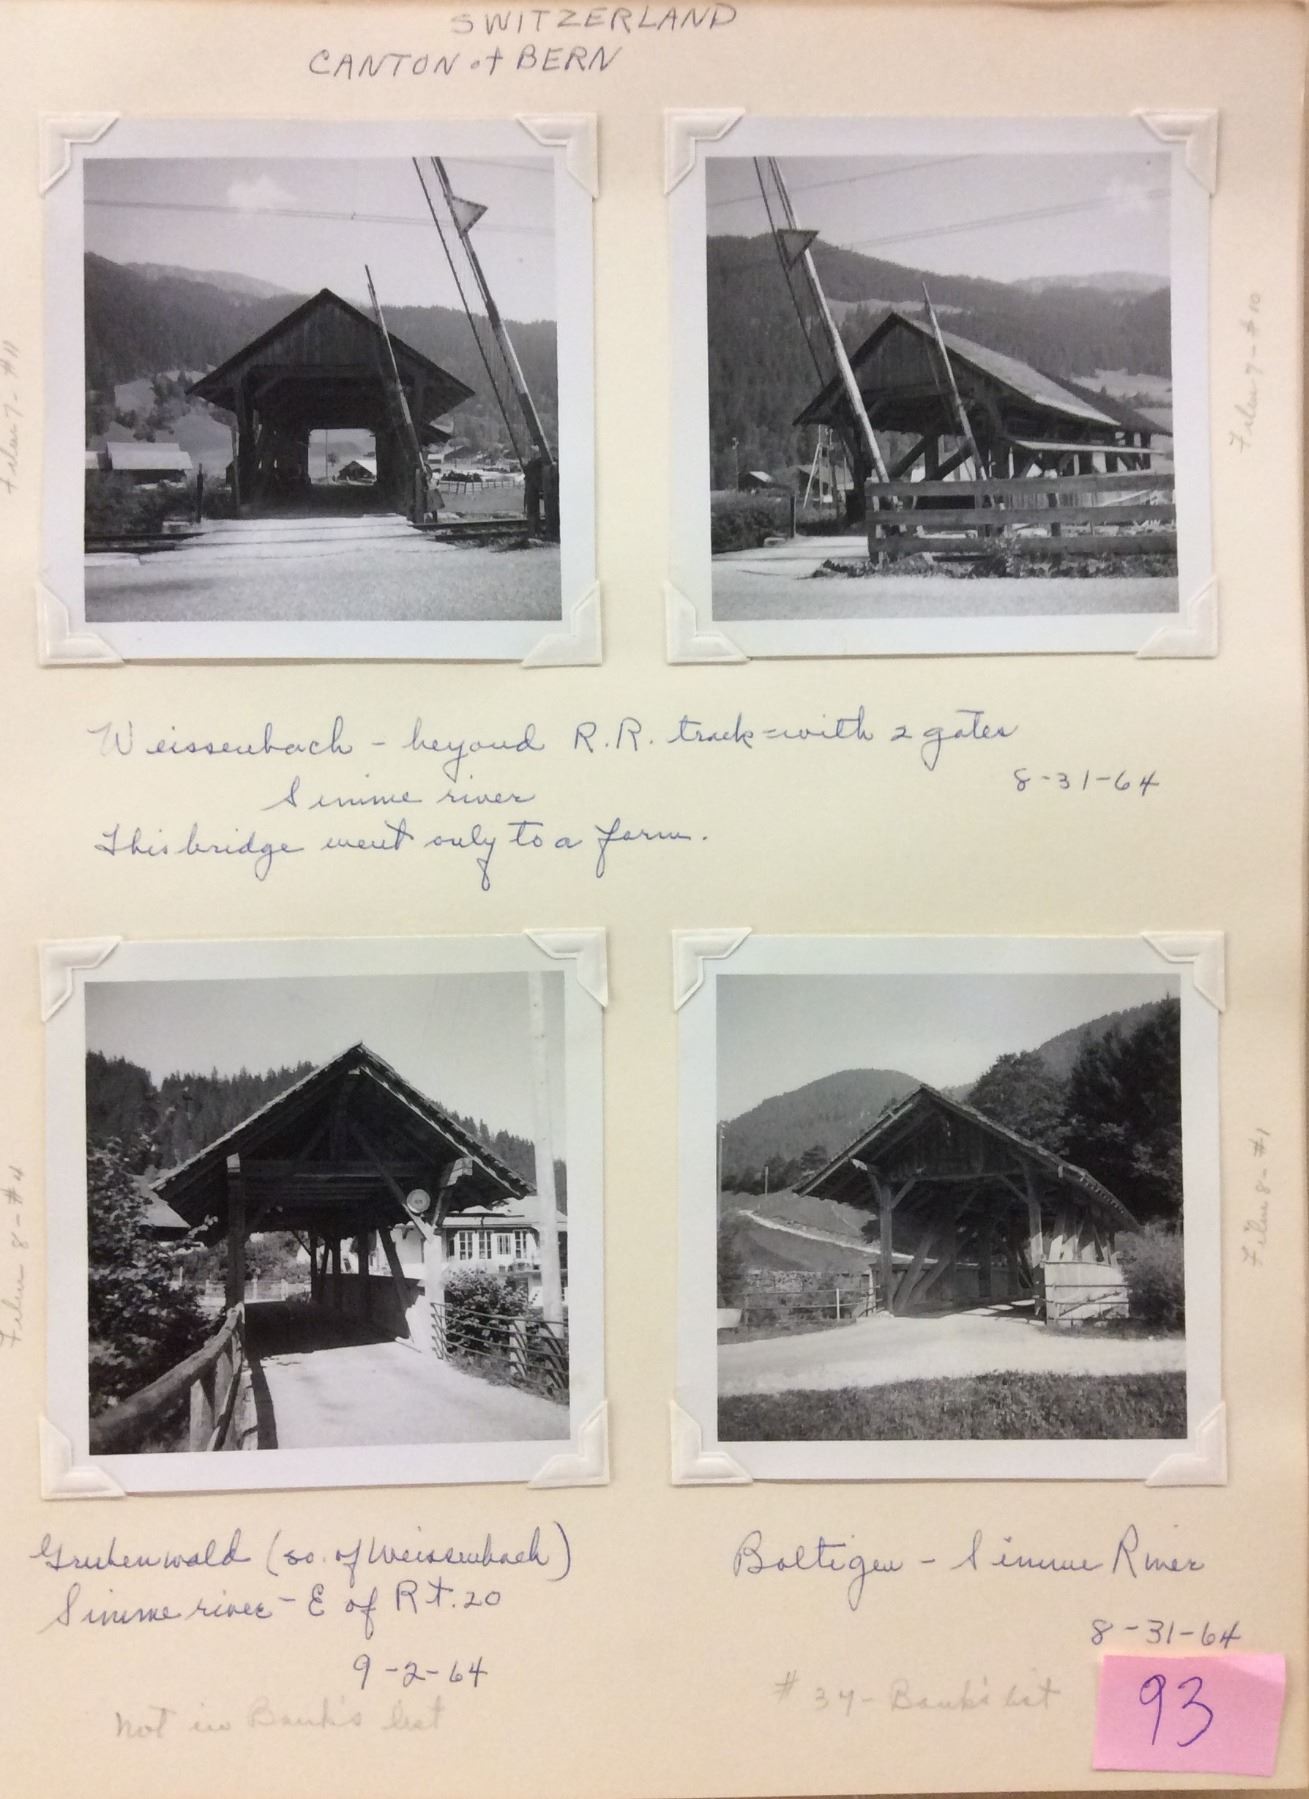 SWITZERLAND
CANTON of BERN
Film 7 - #11
Film 7 - #10
Weissenbach - beyond R.R. track - with 2 gates
8-31-64
Simme river
This bridge went only to a farm.
Film 8 - #4
Film 8 - #1
Grubenwald (so. of Weissenbach)
Simme river - E of Rt. 20
9-2-64
Not in Bank's list
Boltigen - Simme River
8-31-64
#34 - Bank's list
93